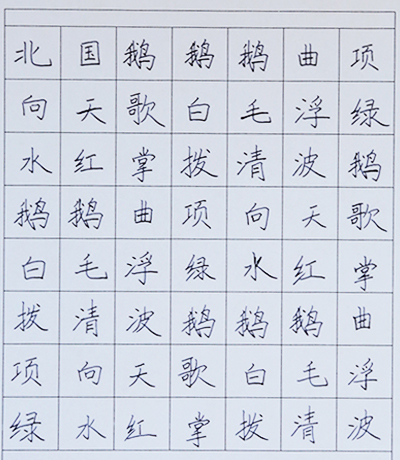 北国鹅鹅鹅曲项
向天歌白毛浮绿
水红掌拨清波鹅
鹅鹅曲项向天歌
白毛浮绿水红掌
拨清波鹅鹅鹅曲
项向天歌白毛浮
绿水红掌拨清波